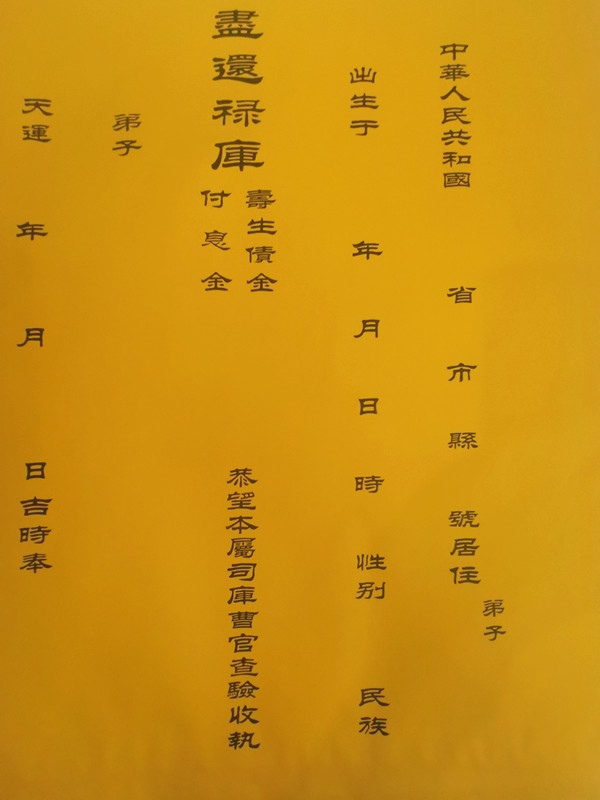 中華人民共和國 省 市 縣 號居住 弟子
出生于 年 月 日 時 性别 民族
盡還禄庫
壽生債金
付息金
恭望本屬司庫曹官查驗收執
弟子
天運 年 月 日吉時奉